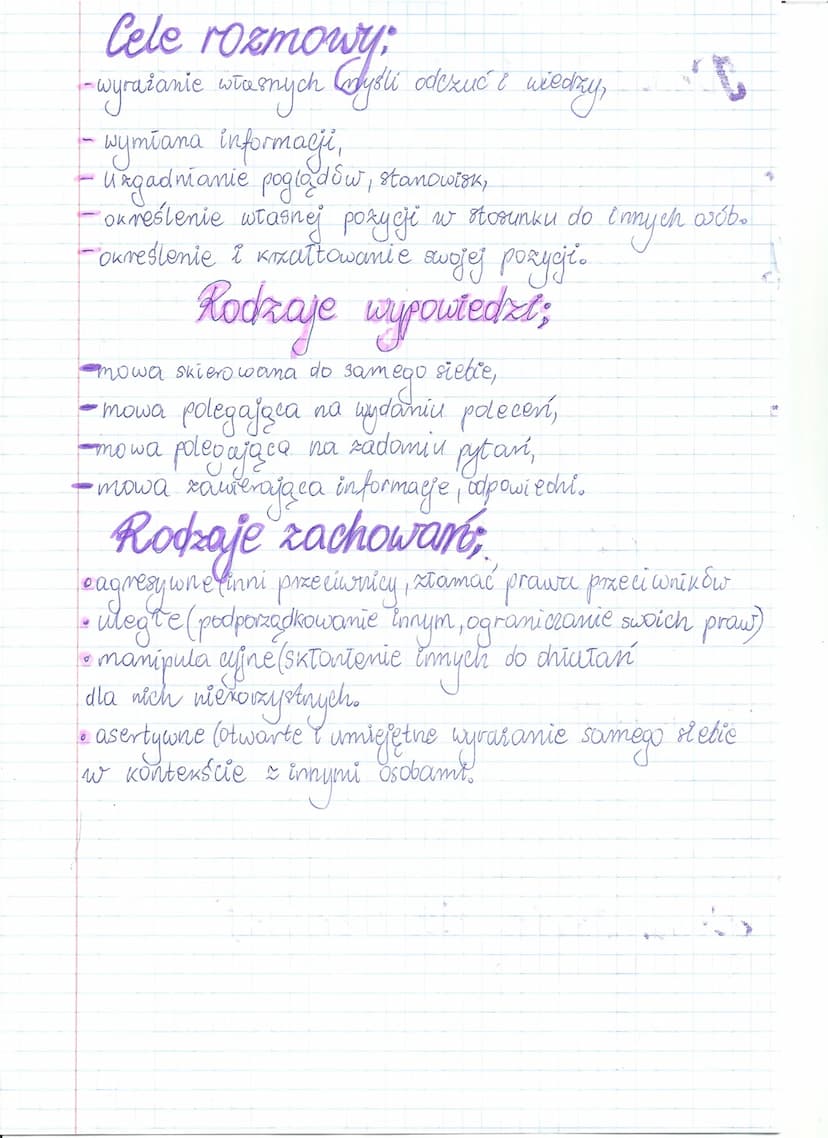 Cele rozmowy:
- wyrażanie własnych myśli odczuć i wiedzy,
- wymiana informacji,
- uzgadnianie poglądów, stanowisk,
- określenie własnej pozycji w stosunku do innych osób.
- określenie i krzałtowanie swojej pozycji.
Rodzaje wypowiedzi;
- mowa skierowana do samego siebie,
- mowa polegająca na wydaniu poleceń,
- mowa polegająca na zadaniu pytań,
- mowa zawierająca informacje, odpowiedzi.
Rodzaje zachowań;
• agresywne (inni przeciwnicy, złamać prawa przeciwników
• uległe (podporządkowanie innym, ograniczanie swoich praw)
• manipulacyjne (skłonienie innych do działań
dla nich niekorzystnych.
• asertywne (otwarte i umiejętne wyrażanie samego siebie
w kontekście z innymi osobami.